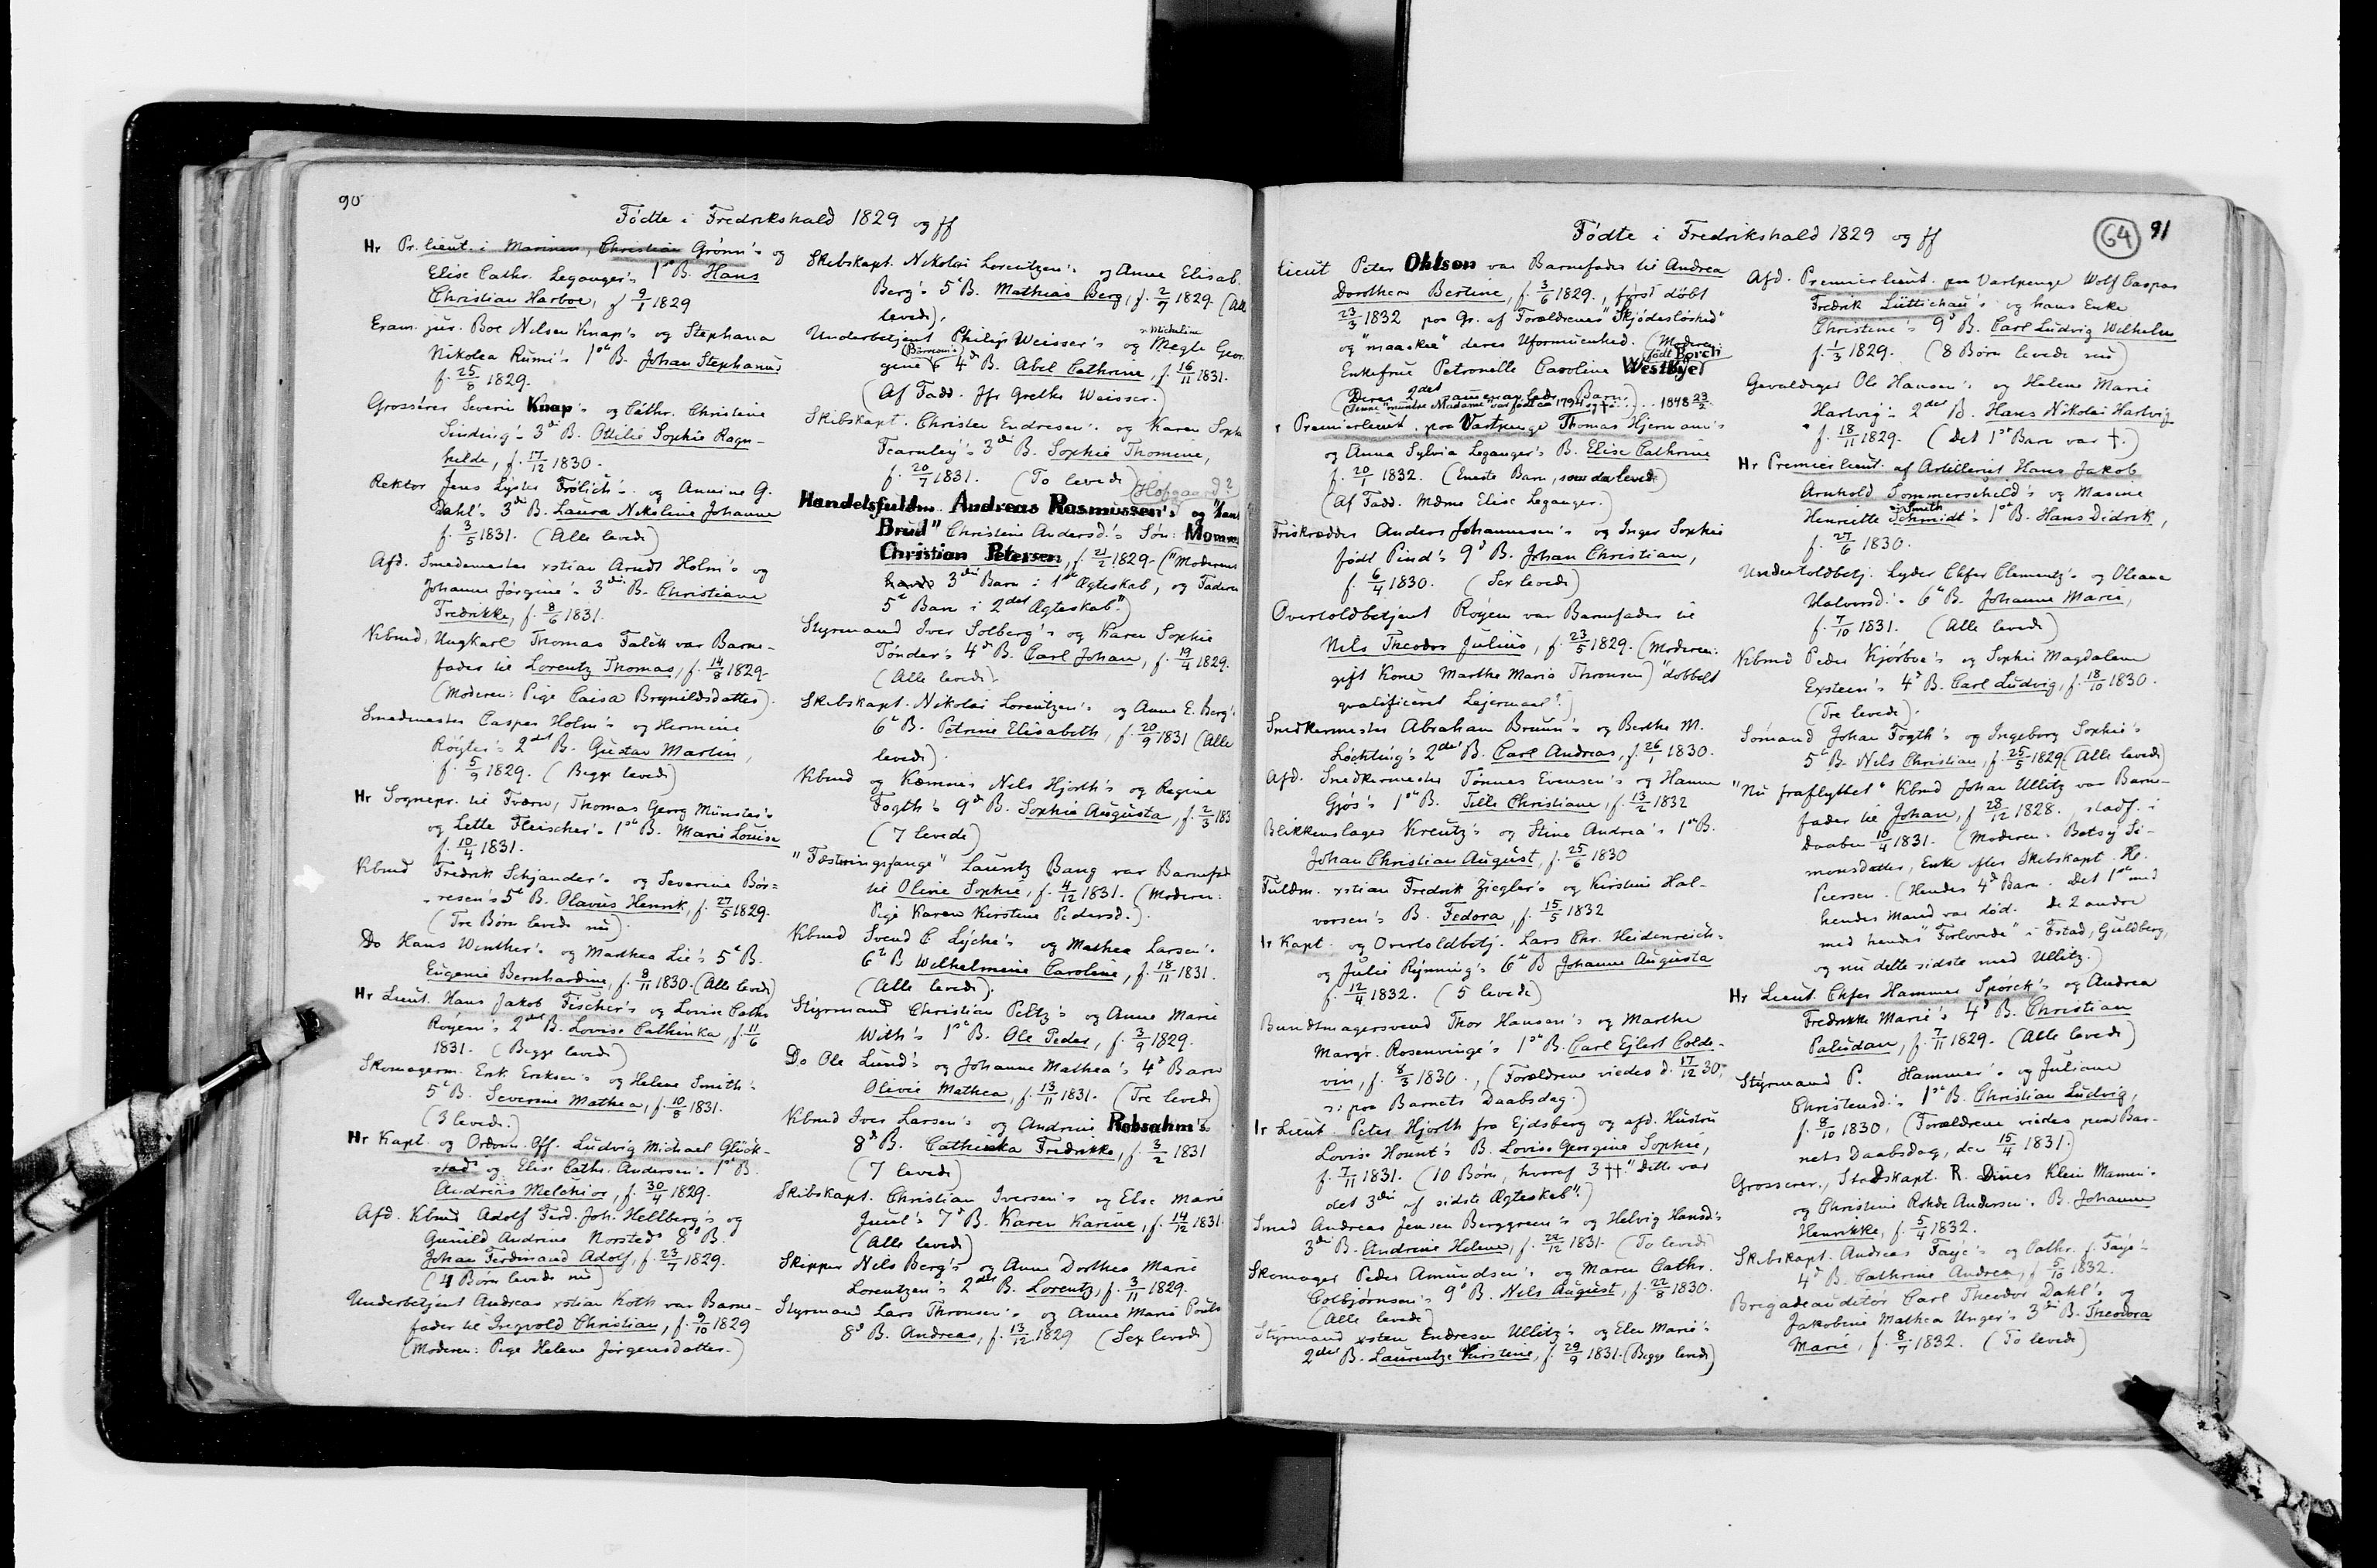 90
Fødte i Fredrikshald 1829 og ff
Hr Pr. lieut. i Marinen, Christian Grønn's og
Elise Cathr. Leganger's 1ste B. Hans
Christian Harboe, f 9/1 1829
Exam. jur. Boe Nilsen Knap's og Stephana
Nikolea Rumi's 1ste B. Johan Stephanus
f. 25/8 1829.
Grosserer Severin Knap's og Cathr. Christine
Sinding's 3die B. Ottilie Sophie Ragn-
hilde, f. 17/12 1830.
Rektor Jens Lyder Frölich's og Annine G.
Dahl's 3die B. Laura Nikoline Johanne
f. 3/5 1831. (Alle levede)
Afd. Smedemester xstian Arndt Holm's og
Johanne Jørgine's 3die B. Christiane
Fredrikke, f. 8/6 1831.
Kbmd, Ungkarl Thomas Falck var Barne-
fader til Lorentz Thomas, f. 14/8 1829.
(Moderen: Pige Caisa Brynildsdatter).
Smedmester Casper Holm's og Hermine
Røyter's 2det B. Gustav Martin,
f. 5/9 1829. (Begge levede)
Hr Sognepr. til Tværn, Thomas Georg Münster's
og Lette Fleischer's 1ste B. Marie Louise
f. 10/4 1831.
Kbmd Fredrik Schjander's og Severine Bør=
resen's 5te B. Olavus Henrik, f. 27/5 1829.
(Tre Børn levede nu).
Do Hans Winther's og Marthea Lie's 5te B.
Eugenie Bernhardine, f. 8/11 1830. (Alle levede)
Hr Lieut. Hans Jakob Fischer's og Lovise Cathr
Røyem's 2det B. Lovise Cathinka, f. 11/6
1831. (Begge levede)
Skomagerm. Erik Eriksen's og Helene Smith's
5te B. Severine Mathea, f. 10/8 1831.
(3 levede.)
Hr Kapt. og Ordonn. Off. Ludvig Michael Glück-
stads og Elise Cathr. Andersen's 1ste B.
Andreas Melchior, f. 30/4 1829.
Afd. Kbmd Adolf Ferd. Joh. Hellberg's og
Gunild Andrine Norsteds 8de B.
Johan Ferdinand Adolf, f. 23/7 1829.
(4 Børn levede nu)
Underbetjent Andreas xstian Koth var Barne-
fader til Ingvold Christian, f. 9/10 1829
(Moderen: Pige Helene Jørgensdatter.)
Skibskapt. Nikolai Lorentzen's og Anne Elisab.
Berg's 5te B. Mathias Berg, f. 2/7 1829. (Alle
levede).
Underbetjent Philip Weisser's og Megle Geor.
gine 4de B. Abel Cathrine, f. 16/11 1831.
(Af Fadd. Jfr Grethe Weisser.)
Skibskapt. Christen Endresen's og Karen Soph
Fearnley's 3die B. Sophie Thomine,
f. 20/7 1831. (To levede) (Hofgaard?)
Handelsfuldm. Andreas Rasmussen's og "hans
Brud" Christine Andersd.'s Søn: Momme
Christian Petersen, f. 21/2 1829. ("Moderens
3die Barn i 1ste Ægteskab, og Faderen
5te Barn i 2det Ægteskab".)
Styrmand Iver Solberg's og Karen Sophie
Tønder's 4de B. Carl Johan, f. 19/4 1829.
(Alle levede).
Skibskapt. Nikolai Lorentzen's og Anne E. Berg's
6te B. Petrine Elisabeth, f. 20/9 1831 (Alle
levede).
Kbmd og Kæmner Nils Hjorth's og Regine
Fogth's 9de B. Sophie Augusta, f. 2/3 183
(7 levede)
"Fæstningsfange" Lauritz Bang var Barnefad
til Oline Sophie, f. 4/12 1831. (Moderen:
Pige Karen Kirstine Pedersd.).
Kbmd Svend C Lyche's og Mathea Larsen's
6te B. Wilhelmine Caroline, f. 18/11 1831.
(Alle levede).
Styrmand Christian Peltz's og Anne Marie
With's 1ste B. Ole Peder, f. 3/9 1829.
Do Ole Lund's og Johanne Mathea's 4de Barn
Olivie Mathea, f. 13/11 1831. (Tre levede)
Kbmd Iver Larsen's og Andrine Robsahm's
8de B. Cathinka Fredrikke, f. 3/2 1831
(7 levede)
Skibskapt. Christian Iversen's og Else Marie
Juul's 7de B. Karen Karine, f. 14/12 1831.
(Alle levede)
Skipper Nils Berg's og Anne Dorthea Marie
Lorentzen's 2det B. Lorentz, f. 3/11 1829.
Styrmand Lars Thronsen's og Anne Marie Pouls
8de B. Andreas, f. 13/12 1829 (Sex levede)
Fødte i Fredrikshald 1829 og ff
64 91
Lieut Peter Ohlson var Barnefader til Andrea
Dorothea Bertine, f. 3/6 1829., først døbt
23/3 1832 paa Gr. af Forældrenes "Skjødesløshed"
og "maaskee" deres Uformuenhed. (Moderen:
født Borch
Enkefrue Petronelle Caroline Westbye)
(Deres 2det Barn.)
Premierlieut. paa Vartpenge Thomas Hjermann's
og Anna Sylvia Leganger's B. Elise Cathrine
f. 20/1 1832. (Eneste Barn, som da levede)
(Af Fadd. Mdme Elise Leganger.)
Friskrædder Anders Johannesen's og Inger Sophie
født Pind's 9de B. Johan Christian,
f. 6/4 1830. (Sex levede)
Overtoldbetjent Røyem var Barnefader til
Nils Theodor Julius, f. 23/5 1829. (Moderen:
gift Kone Marthe Maria Thronsen) "dobbelt
qvalificeret Lejermaal".)
Snedkermester Abraham Bruun's og Berthe M.
Løchting's 2det B. Carl Andreas, f. 26/1 1830.
Afd. Snedkermester Tønnes Evensen's og Hanne
Gjøs's 1ste B. Tille Christiane, f. 13/2 1832
Blikkenslager Kreutz's og Stine Andrea's 1ste B.
Johan Christian August, f. 25/6 1830
Fuldm. xstian Fredrik Ziegler's og Kirstine Hal-
vorsen's B. Fedora, f. 15/5 1832
Hr Kapt. og Overtoldbetj. Lars Chr. Heidenreich's
og Julie Rynning's 6te B Johanne Augusta
f. 12/4 1832. (5 levede)
Bundtmagersvend Thor Hansen's og Marthe
Margr. Rosenvinge's 1ste B. Carl Ejlert Colde-
vin, f. 8/3 1830., (Forældrene viedes d. 17/12 30,
ɔ: paa Barnets Daabsdag.)
Hr Lieut. Peter Hjorth fra Ejdsberg og afd. Hustru
Lovise Hount's B. Lovise Georgine Sophie,
f. 7/11 1831. (10 Børn, hvoraf 3 ††." Dette var
det 3die af sidste Ægteskab".)
Smed Andreas Jensen Berggreen's og Helvig Hansd's
3die B. Andrine Helene, f. 24/12 1831. (To levede)
Skomager Peder Amundsen's og Maren Cathr.
Colbjørnsen's 9de B. Nils August, f. 22/8 1830.
(Alle levede)
Styrmand xsten Endresen Ullitz's og Elen Marie's
2det B. Laurentze Kirstine, f. 29/9 1831. (Begge levede)
Afd. Premierlieut. paa Vartpenge Wolf Caspar
Fredrik Lüttichau's og hans Enke
Christine's 9de B. Carl Ludvig Wilhelm
f. 1/3 1829. (8 Børn levede nu)
Gevaldiger Ole Hansen's og Helene Marie
Hartvig's 2det B. Hans Nikolai Hartvig
f. 18/11 1829. (Det 1ste Barn var †.)
Hr Premierlieut. af Artilleriet Hans Jakob
Arnhold Sommerschild's og Maxine
Smith
Henriette Schmidt's 1ste B. Hans Didrik,
f. 27/6 1830.
Undertoldbetj. Lyder Chfer Clementz's og Oleana
Halvorsd.'s 6te B. Johanne Marie,
f. 7/10 1831. (Alle levede)
Kbmd Peder Kjørboe's og Sophie Magdalene
Exsteen's 4de B. Carl Ludvig, f. 18/10 1830.
(Tre levede).
Sømand Johan Fogth's og Ingeborg Sophie's
5te B. Nils Christian, f. 25/5 1829 (Alle levede)
"Nu fraflyttet" Kbmd Johan Ullitz var Barne-
fader til Johan, f 28/12 1828. stadf. i
Daaben 10/4 1831. (Moderen: Betsy Si-
monsdatter, Enke efter Skibskapt. H.
Peersen. (Hendes 4de Barn. Det 1ste med
hendes Mand var død. De 2 andre
med hendes "Forlovede" i Fstad, Guldberg,
og nu dette sidste med Ullitz.)
Hr Lieut. Chfer Hammer Spørck's og Andrea
Fredrikke Marie's 4de B. Christian
Paludan, f. 7/11 1829. (Alle levede)
Styrmand P. Hammer's og Juliane
Christensd.'s 1ste B. Christian Ludvig,
f. 8/10 1830. (Forældrene viedes paa Bar-
nets Daabsdag, den 15/4 1831.)
Grosserer, Stadskapt. R. Dines Klein Mamen's
og Christine Rohde Andersen's B. Johanne
Henrikke, f. 5/4 1832.
Skibskapt. Andreas Faye's og Cathr. f. Faye's
4de B. Cathrine Andrea, f 5/10 1832.
Brigadeauditør Carl Theodor Dahl's og
Jakobine Mathea Unger's 3die B. Theodora
Marie, f. 8/7 1832. (To levede)